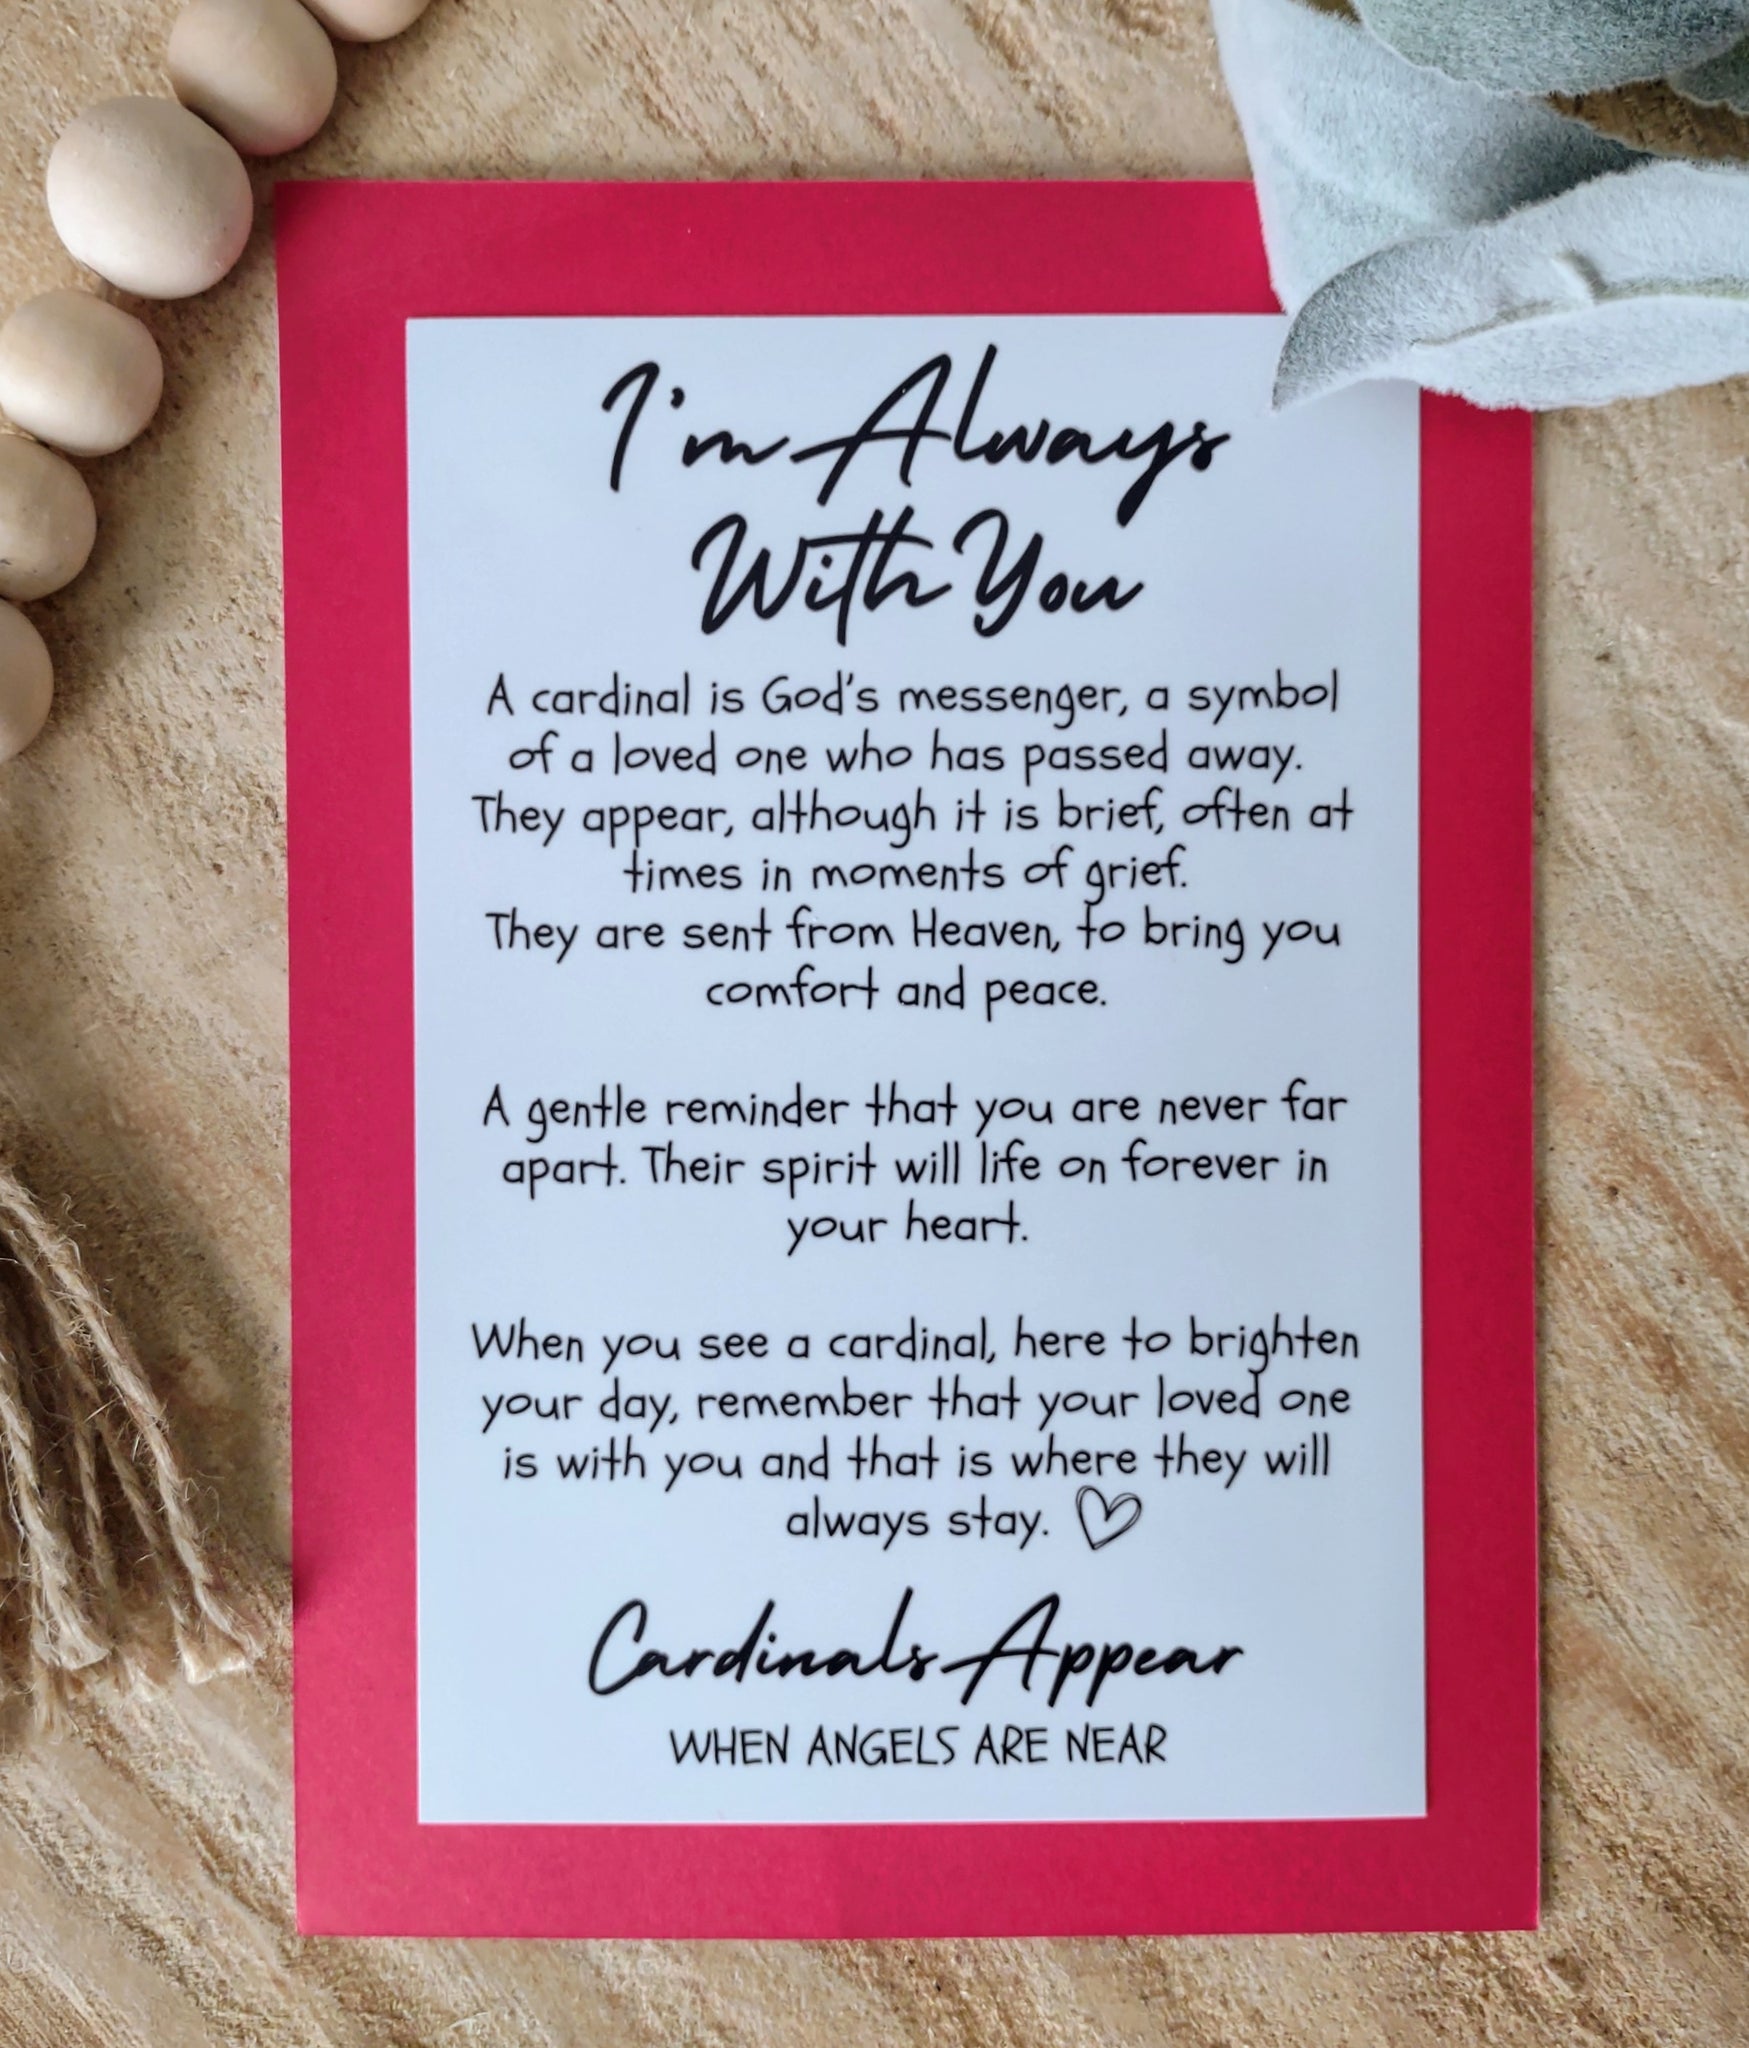 I'm Always
With You
A cardinal is God's messenger, a symbol
of a loved one who has passed away.
They appear, although it is brief, often at
times in moments of grief.
They are sent from Heaven, to bring you
comfort and peace.
A gentle reminder that you are never far
apart. Their spirit will life on forever in
your heart.
When you see a cardinal, here to brighten
your day, remember that your loved one
is with you and that is where they will
always stay.
Cardinals Appear
WHEN ANGELS ARE NEAR